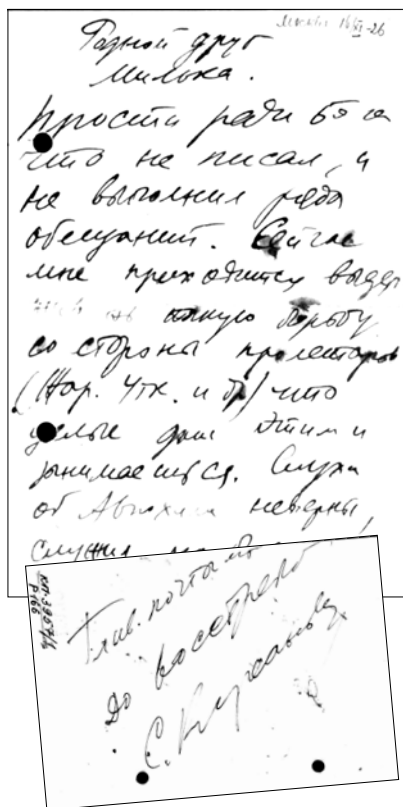 Москва 16/XI-26
Родной друг
Милька.
Прости ради Бога
что не писал, и
не выполнил ряда
обещаний. Сейчас
мне приходится выдер
такую борьбу
со стороны пролетаров
(Нар. Утк. и др) что
целые дни этим и
занимаешься. Слухи
об неверны,
КП-3957/6
Р-166
Глав. почтамт
До востребов
С. Кирсанову